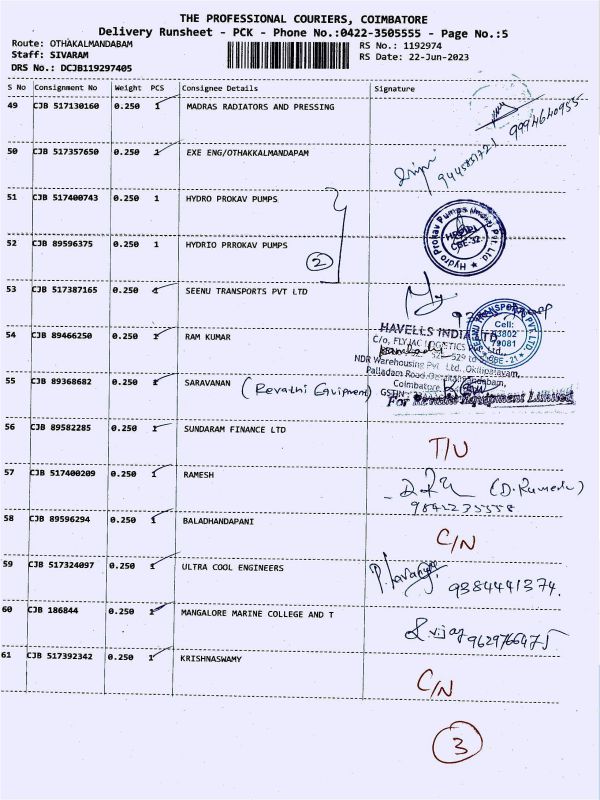 THE PROFESSIONAL COURIERS, COIMBATORE
Delivery Runsheet - PCK - Phone No.:0422-3505555 - Page No.:5
Route: OTHAKALMANDABAM
RS No.: 1192974
Staff: SIVARAM
RS Date: 22-Jun-2023
DRS No.: DCJB119297405
S No Consignment No Weight PCS Consignee Details Signature
49 CJB 517130160 0.250 1 MADRAS RADIATORS AND PRESSING
9994640955
50 CJB 517357650 0.250 1 EXE ENG/OTHAKKALMANDAPAM
51 CJB 517400743 0.250 1 HYDRO PROKAV PUMPS
52 CJB 89596375 0.250 1 HYDRIO PRROKAV PUMPS
2
Hydro Prokav Pumps (India) Pvt. Ltd
CBE-32
53 CJB 517387165 0.250 1 SEENU TRANSPORTS PVT LTD
SEENU TRANSPORT PVT.LTD
Cell:
93802
79081
CBE - 21
54 CJB 89466250 0.250 1 RAM KUMAR
HAVELLS INDIA LTD
C/o, FLYJAC LOGISTICS Pvt Ltd.,
NDR Warehousing Pvt Ltd.,Okilipalayam,
Palladam Road,
Coimbatore
GSTIN
55 CJB 89368682 0.250 1 SARAVANAN (Revathi Equipment)
For Revathi Equipment Limited
56 CJB 89582285 0.250 1 SUNDARAM FINANCE LTD
T/U
57 CJB 517400209 0.250 1 RAMESH
(D.Ramesh)
9842235558
58 CJB 89596294 0.250 1 BALADHANDAPANI
C/N
59 CJB 517324097 0.250 1 ULTRA COOL ENGINEERS
9384441374.
60 CJB 186844 0.250 1 MANGALORE MARINE COLLEGE AND T
vijay
9629766475
61 CJB 517392342 0.250 1 KRISHNASWAMY
C/N
3